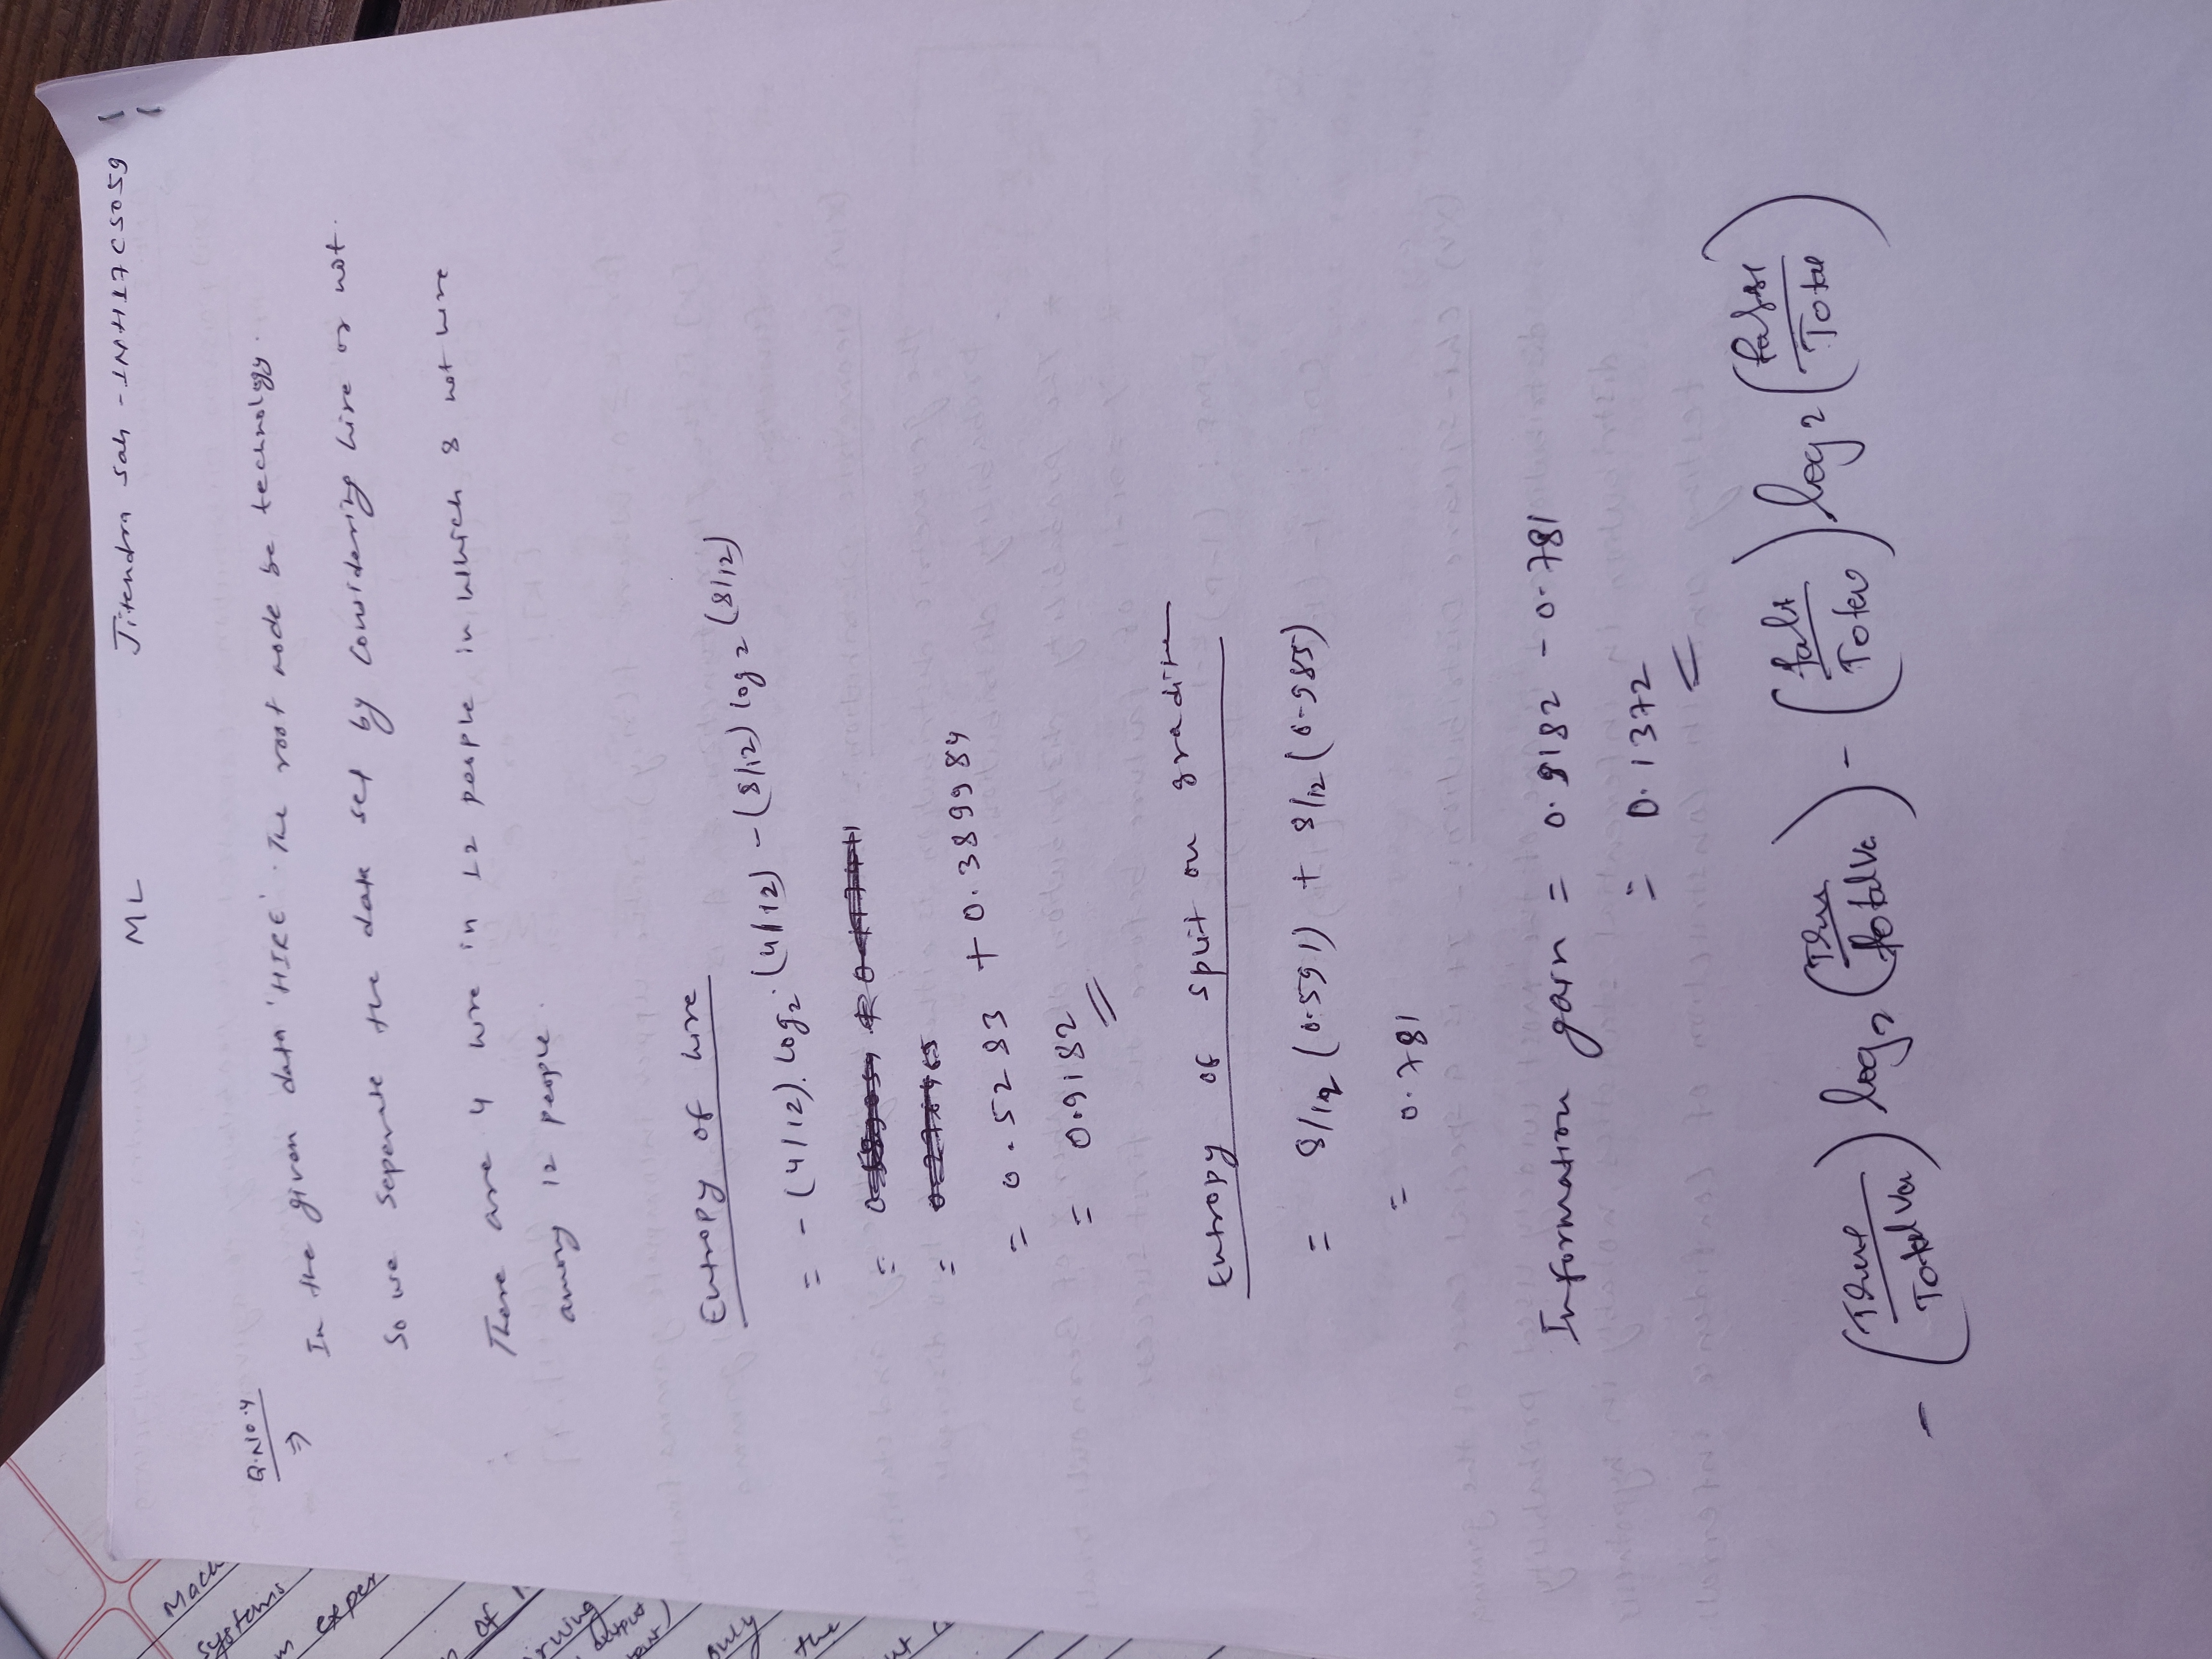 ML
Jitendra Sah - 1NH17CS059
Q.No.4
⇒
In the given data 'HIRE'. The root node be technology.
So we seperate the data set by considering hire or not.
There are 4 hire in 12 people in which 8 not hire
among 12 people.
Entropy of hire
= - (4/12). log2 (4/12) - (8/12) log2 (8/12)
=
=
= 0.5283 + 0.389984
= 0.9182
Entropy of split on
= 8/12 (0.591) + 8/12 (0.985)
= 0.781
Information gain = 0.9182 - 0.781
= 0.1372
- (True/Total Va) log2 (Tru/Total Va) - (/Total) log2 (/Total)
Mach
systems
exper
of
output
only
the